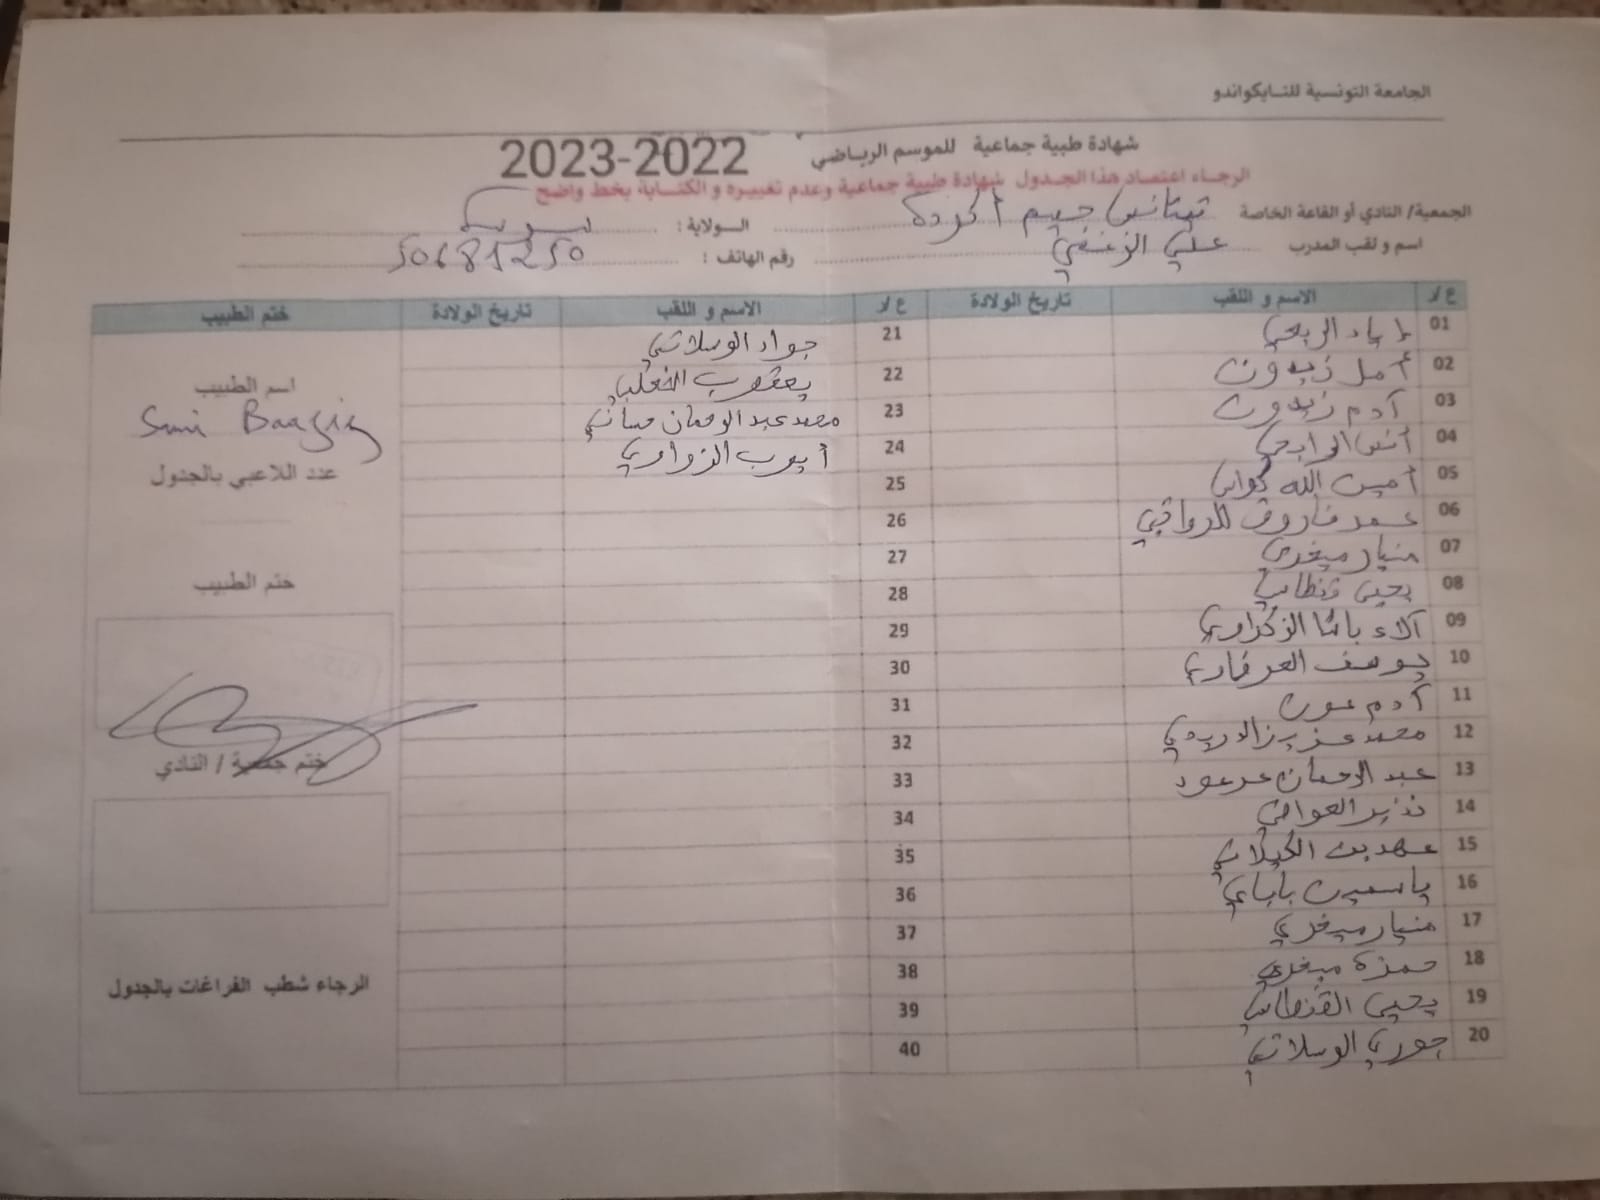 الجامعة التونسية للتايكواندو
شهادة طبية جماعية للموسم الرياضي 2022-2023
الرجاء اعتماد هذا الجدول شهادة طبية جماعية وعدم تغييره و الكتابة بخط واضح
الجمعية/ النادي أو القاعة الخاصة تيتانس جيم أكودة الولاية : سوسة
اسم و لقب المدرب علي رقم الهاتف : 50681250
ع/ر الاسم و اللقب تاريخ الولادة ع/ر الاسم و اللقب تاريخ الولادة ختم الطبيب
01 إياد الربحي 21 جواد الوسلاتي
02 أمل زيدون 22 يعقوب
03 آدم زيدون 23 محمد عبد الرحمان
04 أنس الرابحي 24 أيوب الزواري
05 أمين الله 25
06 محمد فاروق الدواقي 26
07 منيار ميغري 27
08 يحيى قنطاس 28
09 آلاء باشا الزكراوي 29
10 يوسف 30
11 آدم عون 31
12 محمد عزيز الدريدي 32
13 عبد الرحمان مرعود 33
14 نذير 34
15 عهد بن الكيلاني 35
16 ياسمين باباي 36
17 منيار ميغري 37
18 حمزة ميغري 38
19 يحيى القنطاس 39
20 جوري الوسلاتي 40
اسم الطبيب
عدد اللاعبي بالجدول
ختم الطبيب
ختم جمعية / النادي
الرجاء شطب الفراغات بالجدول